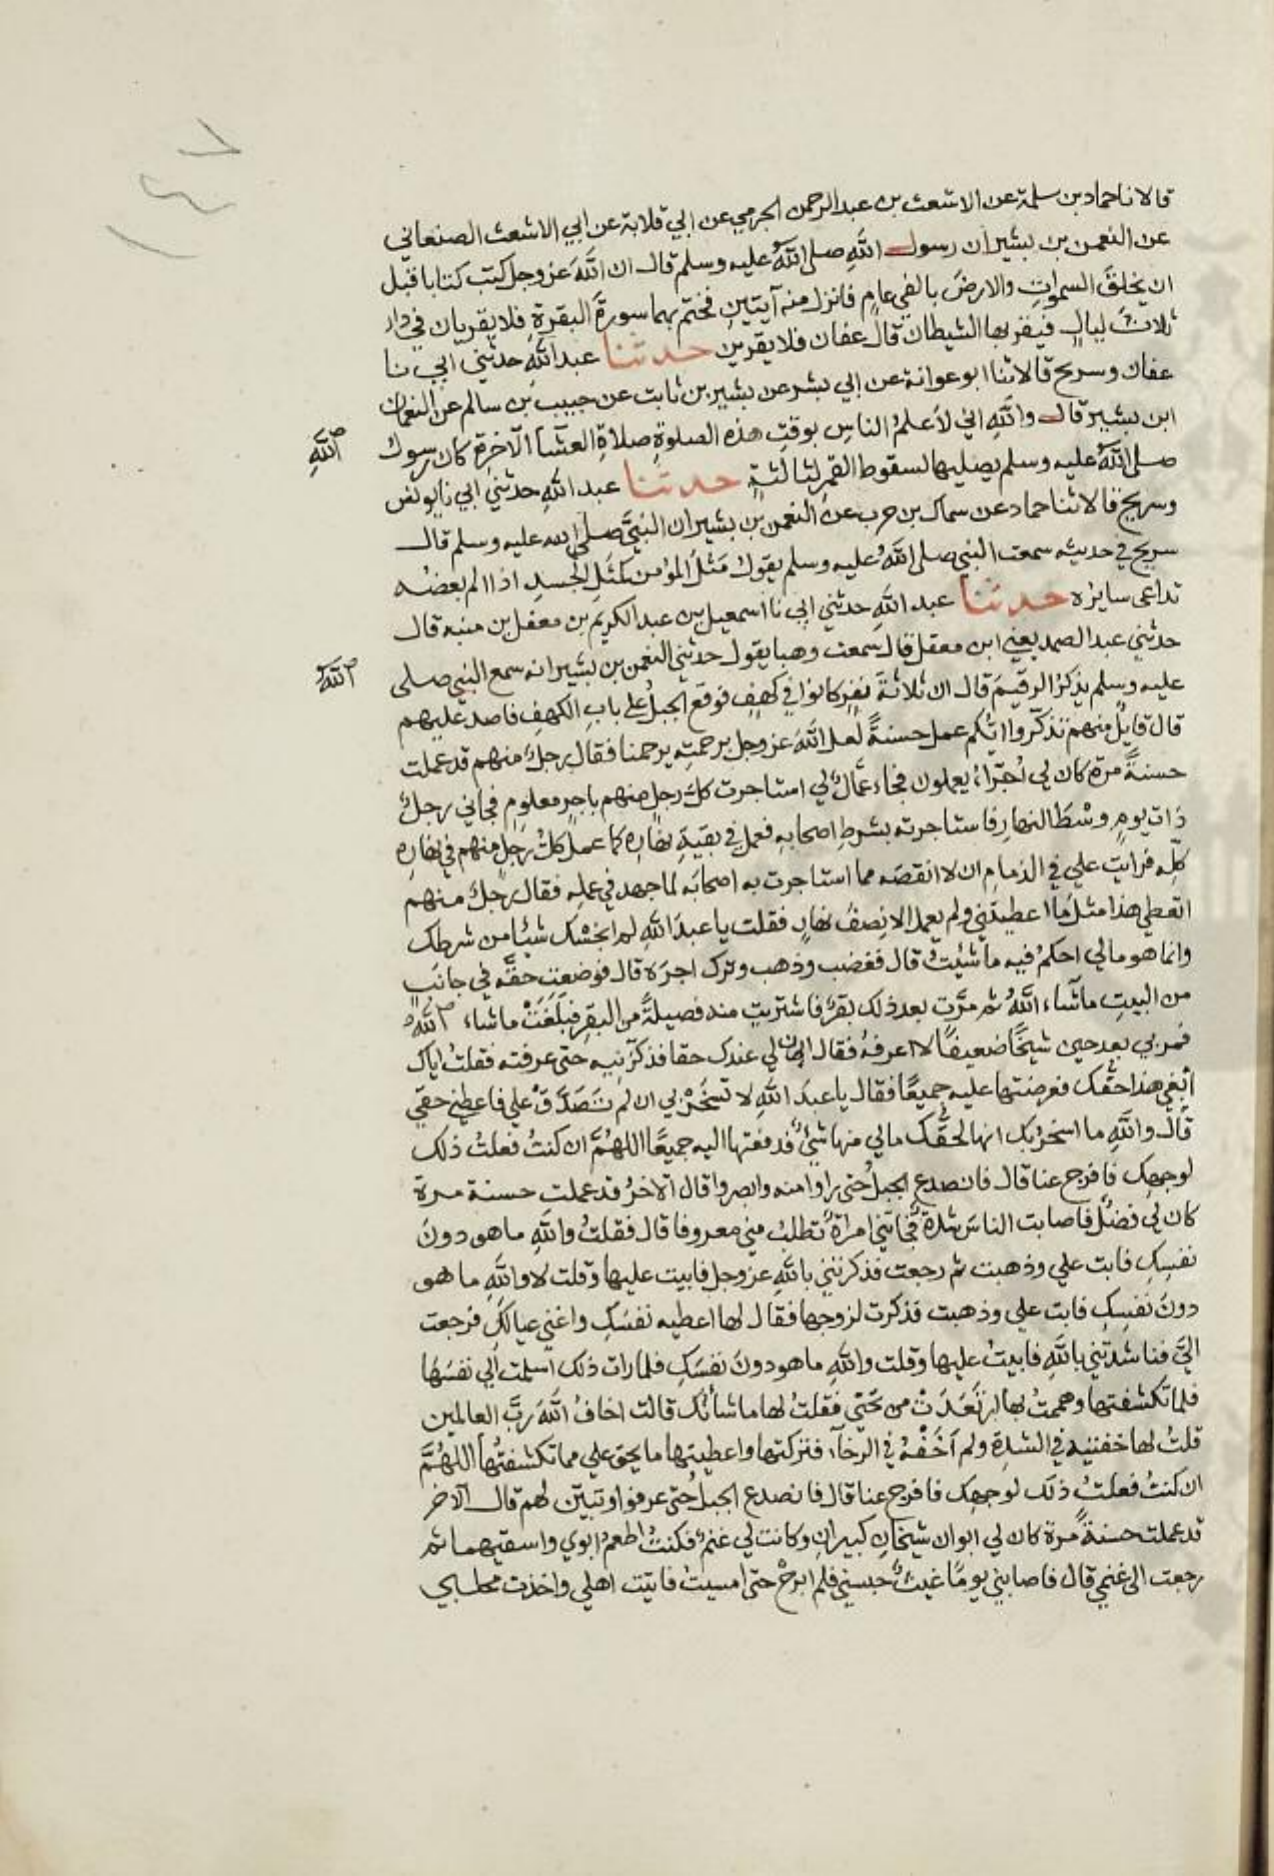 قالا نا حماد بن سلمة عن الاشعث بن عبد الرحمن الجرمي عن ابي قلابة عن ابي الاشعث الصنعاني
عن النعمن بن بشير ان رسول اللَّهِ صلى اللَّهُ عليه وسلم قال ان اللَّهَ عز وجل كتب كتابا قبل
ان يخلقَ السمواتِ والارضَ بالفي عامٍ فانزل منه آيتينِ فختم بهما سورةَ البقرةِ فلا يقربان في دار
ثلاثَ ليالٍ فيقربها الشيطان قال عفان فلا يقربن حدثنا عبد اللَّهِ حدثني ابي نا
عفان وسريج قالا ثنا ابو عوانة عن ابي بشر عن بشير بن ثابت عن حبيب بن سالم عن النعمان
ابن بشير قال واللَّهِ اني لأعلمُ الناسِ بوقتِ هذه الصلوةِ صلاةِ العشآ الآخرةِ كان رسول اللَّهِ
صلى اللَّهُ عليه وسلم يصليها لسقوط القمرِ لثالثةٍ حدثنا عبد اللَّهِ حدثني ابي نا يونس
وسريج قالا ثنا حماد عن سماك بن حرب عن النعمن بن بشير ان النبيَّ صلى الله عليه وسلم قال
سريج في حديثه سمعت النبي صلى اللَّهُ عليه وسلم يقول مَثَلُ المؤمن كمَثَلِ الجسدِ اذا الم بعضُه
تداعى سايرُه حدثنا عبد اللَّهِ حدثني ابي نا اسمعيل بن عبد الكريم بن معقل بن منبه قال
حدثني عبد الصمد يعني ابن معقل قال سمعت وهبا يقول حدثني النعمن بن بشير انه سمع النبي صلى اللَّهُ
عليه وسلم يذكرُ الرقيمَ قال ان ثلاثةَ نفرٍ كانوا في كهفٍ فوقع الجبلُ على بابِ الكهفِ فاصد عليهم
قال قايلٌ منهم تذكّروا ايُّكم عمل حسنةً لعل اللَّهَ عز وجل برحمتِه يرحمنا فقال رجلٌ منهم قد عملت
حسنةً مرة كان لي اُجَرَاءُ يعملون فجاء عمالٌ لي استاجرت كل رجلٍ منهم باجرٍ معلومٍ فجاني رجلٌ
ذات يومٍ وسْطَ النهارِ فاستاجرته بشرطِ اصحابِه فعمل في بقيةِ نهارِه كما عمل كلُّ رجلٍ منهم في نهارِه
كلِّه فرايت علي في الذمامِ ان لا انقصَه مما استاجرت به اصحابَه لما جهد في عملِه فقال رجلٌ منهم
اتعطي هذا مثلَ ما اعطيتني ولم يعمل الا نِصفَ نهارٍ فقلت يا عبدَ اللَّهِ لم ابخسْك شيئًا من شرطك
وانما هو مالي احكمُ فيه ما شئتُ قال فغضب وذهب وترك اجرَه قال فوضعت حقَّه في جانبٍ
من البيتِ ماشاء اللَّهُ ثم مرّت بعد ذلك بقرٌ فاشتريت منه فصيلةً من البقرِ فبلَغَتْ ما شاء اللَّهُ
فمر بي بعد حين شيخًا ضعيفًا لا اعرفُه فقال ان لي عندك حقا فذكّرَنِيه حتى عرفته فقلتُ اياك
أبغي هذا حقُّك فعرضتها عليه جميعًا فقال يا عبدَ اللَّهِ لا تسخَرْ بي ان لم تَصَدَّقْ علي فاعطني حقي
قال واللَّهِ ما اسخرُ بك انها لحقُّك مالي منها شيءٌ فدفعتها اليه جميعًا اللهُمَّ ان كنتُ فعلتُ ذلك
لوجهِك فافرج عنا قال فانصدع الجبلُ حتى راوا منه وابصروا قال الآخرُ قد عملت حسنة مرة
كان لي فضلٌ فاصابت الناسَ شدةٌ فجاتني امراةٌ تطلبُ مني معروفا قال فقلتُ واللَّهِ ما هو دونَ
نفسِكِ فابت علي وذهبت ثم رجعت فذكرتني باللَّهِ عز وجل فابيت عليها وقلت لا واللَّهِ ما هو
دونَ نفسِكِ فابت علي وذهبت فذكرت لزوجها فقال لها اعطيه نفسَكِ واغني عيالَكِ فرجعت
اليَّ فناشدتني باللَّهِ فابيتُ عليها وقلت واللَّهِ ما هو دونَ نفسَكِ فلما رات ذلك اسلمت اليّ نفسَها
فلما تكشفتها وهممتُ بها ارتَعَدَتْ من تحتي فقلتُ لها ما شأنُك قالت اخافُ اللَّهَ ربَّ العالمين
قلتُ لها خفتيه في الشدةِ ولم اَخَفْهُ في الرّخآءِ فتركتها واعطيتها ما يحق علي مما تكشفتُها اللهُمَّ
ان كنتُ فعلتُ ذلك لوجهِك فافرج عنا قال فانصدع الجبلُ حتى عرفوا وتبيّن لهم قال الآخر
قد عملت حسنةً مرة كان لي ابوان شيخانِ كبيرانِ وكانت لي غنمٌ فكنتُ اطعمُ ابوي واسقيهما ثم
رجعت الى غنمي قال فاصابني يومًا غيثٌ حبسني فلم ابرحْ حتى امسيتُ فاتيت اهلي واخذت محلبي